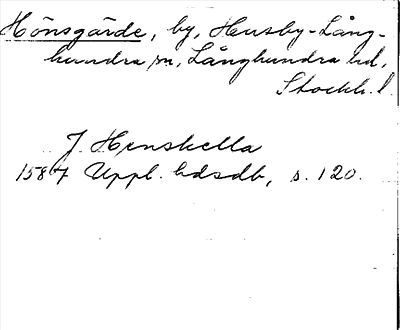 Hönsgärde, by, Husby-Lång-
hundra sn, Långhundra hd,
Stockh. l.
J Henskella
1587 Uppl. hdsdb, s. 120.